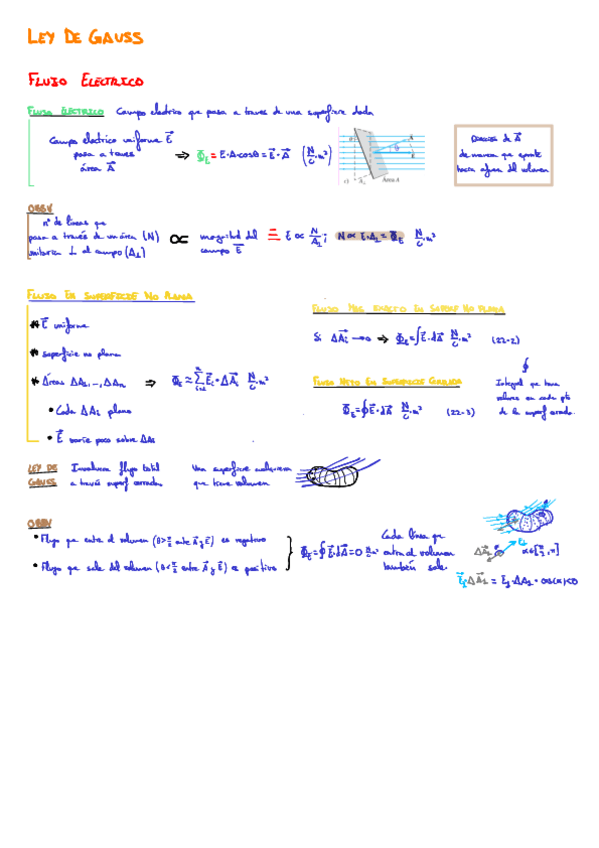 LEY DE GAUSS
FLUJO ELÉCTRICO
FLUJO ELÉCTRICO Campo electrico que pasa a traves de una superficie dada
Campo electrico uniforme E⃗
pasa a traves
área A⃗
⇒ Φ_E = E·A·cosθ = E⃗·A⃗ (N/C·m²)
Área A
Dirección de A⃗
de manera que apunte
hacia afuera del volumen
OBSV
nº de líneas que
pasa a través de un área (N)
unitaria ⊥ al campo (A⊥)
∝ magnitud del
campo E⃗
= E ∝ N/A⊥; N ∝ E·A⊥ = Φ_E N/C·m²
FLUJO EN SUPERFICIE NO PLANA
* E⃗ uniforme
* superficie no plana
* Áreas ΔA₁,…,ΔAₙ ⇒ Φ_E ≈ Σ E⃗ᵢ·ΔA⃗ᵢ N/C·m²
• Cada ΔAᵢ plano
• E⃗ varíe poco sobre ΔAᵢ
FLUJO MAS EXACTO EN SUPERF NO PLANA
Si ΔA⃗ᵢ → 0 ⇒ Φ_E = ∫E⃗·dA⃗ N/C·m² (22-2)
FLUJO NETO EN SUPERFICIE CERRADA
Φ_E = ∮E⃗·dA⃗ N/C·m² (22-3)
∮
Integral que toma
valores en cada pto
de la superf cerrada.
LEY DE GAUSS
Involucra flujo total
a través superf cerrada.
Una superficie cualquiera
que tiene volumen
OBSV
• Flujo que entra al volumen (θ>π/2 entre A⃗ y E⃗) es negativo
• Flujo que sale del volumen (θ<π/2 entre A⃗ y E⃗) es positivo
Φ_E = ∮E⃗·dA⃗ = 0 N/C·m²
Cada línea que
entra al volumen
también sale.
E⃗₁
ΔA⃗₁
α∈[π/2, π]
E⃗₁·ΔA⃗₁ = E₁·ΔA₁·cos(α)<0